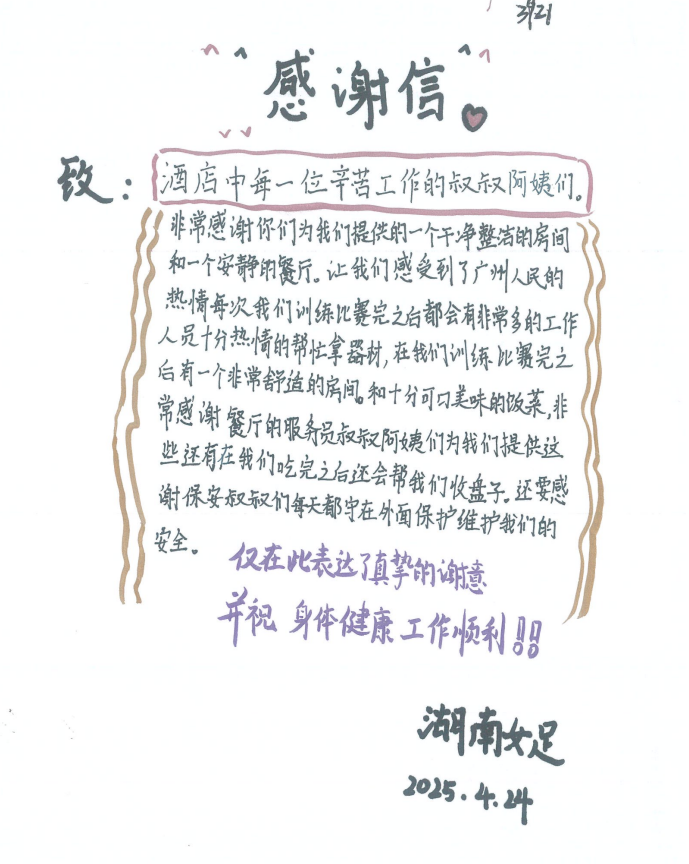 3121
感谢信
致：酒店中每一位辛苦工作的叔叔阿姨们。
非常感谢你们为我们提供的一个干净整洁的房间
和一个安静的餐厅。让我们感受到了广州人民的
热情每次我们训练比赛完之后都会有非常多的工作
人员十分热情的帮忙拿器材,在我们训练比赛完之
后有一个非常舒适的房间。和十分可口美味的饭菜,非
常感谢餐厅的服务员叔叔阿姨们为我们提供这
些还有在我们吃完之后还会帮我们收盘子。还要感
谢保安叔叔们每天都守在外面保护维护我们的
安全。
仅在此表达了真挚的谢意
并祝 身体健康 工作顺利!!
湖南女足
2025.4.24